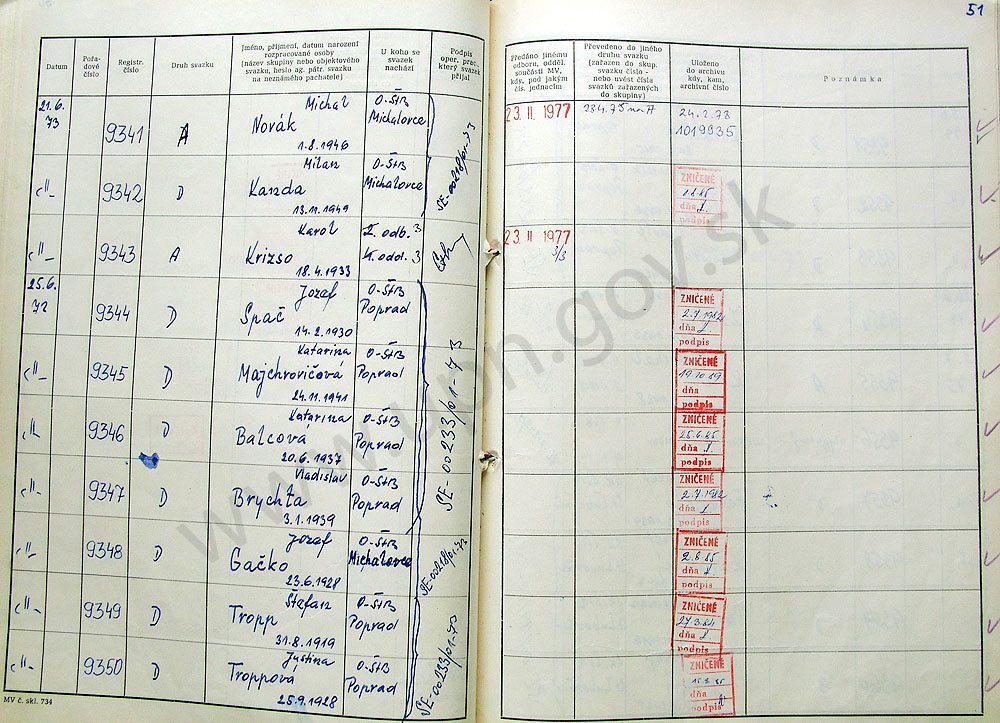 51
Datum
Pořa-
dové
číslo
Registr.
číslo
Druh svazku
Jméno, příjmení, datum narození
rozpracované osoby
(název skupiny nebo objektového
svazku, heslo ag. pátr. svazku
na neznámého pachatele)
U koho se
svazek
nachází
Podpis
oper. prac.,
který svazek
přijal
Předáno jinému
odboru, odděl.
součásti MV,
kdy, pod jakým
čís. jednacím
Převedeno do jiného
druhu svazku
(zařazen do skup.
svazku číslo -
nebo uvést čísla
svazků zařazených
do skupiny)
Uloženo
do archivu
kdy, kam,
archivní číslo
Poznámka
21.6.
73
9341
A
Michal
Novák
1.8.1946
O-ŠtB
Michalovce
23. II. 1977
24.2.78
1019935
9342
D
Milan
Kanda
13.11.1949
O-ŠtB
Michalovce
ZNIČENÉ
dňa
podpis
9343
A
Karol
Krizso
18.4.1933
odb. 3
odd. 3
23. II 1977
3/3
25.6.
9344
D
Jozef
Spač
14.2.1930
O-ŠtB
Poprad
ZNIČENÉ
2.7.1982
dňa
podpis
9345
D
Katarina
Majchrovičová
24.11.1941
O-ŠtB
Poprad
SE-00233/01-73
ZNIČENÉ
19.10.89
dňa
podpis
9346
D
Katarina
Balcova
20.6.1937
O-ŠtB
Poprad
ZNIČENÉ
25.6.85
dňa
podpis
9347
D
Vladislav
Brychta
3.1.1939
O-ŠtB
Poprad
ZNIČENÉ
2.7.1982
dňa
podpis
9348
D
Jozef
Gačko
23.6.1928
O-ŠtB
Michalovce
ZNIČENÉ
2.8.85
dňa
podpis
9349
D
Štefan
Tropp
31.8.1919
O-ŠtB
Poprad
SE-00233/01-73
ZNIČENÉ
27.3.84
dňa
podpis
9350
D
Justina
Troppova
25.9.1928
O-ŠtB
Poprad
ZNIČENÉ
dňa
podpis
MV č. skl. 734
www.upn.gov.sk